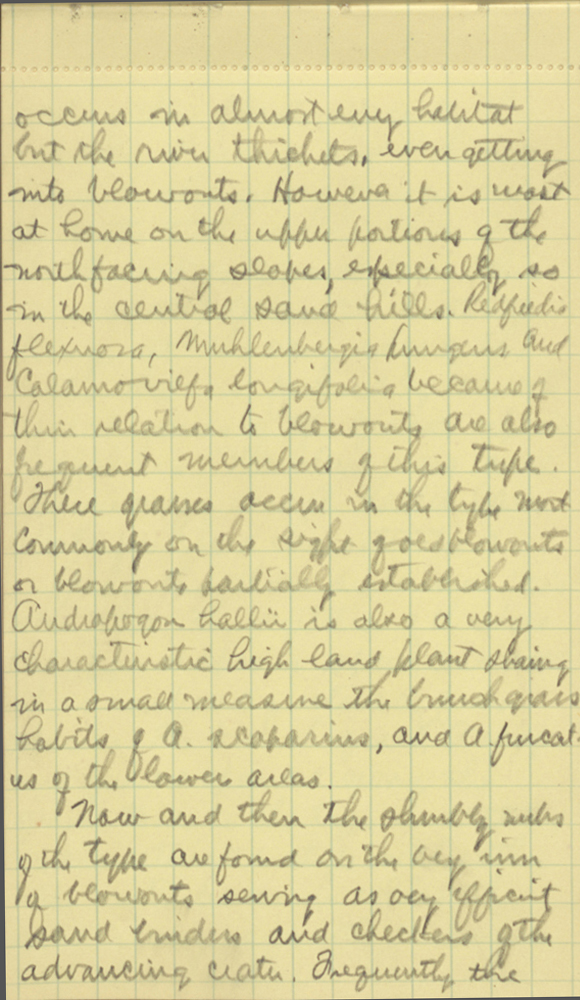 occurs in almost every habitat
but the river thickets, even getting
into blowouts. However it is most
at home on the upper portions of the
north facing slopes, especially so
in the central sand hills. Redfieldia
flexuosa, Muhlenbergia pungens and
Calamovilfa longifolia because of
their relation to blowouts are also
frequent members of this type.
These grasses occur in the type most
commonly on the sight of old blowouts
or blowouts partially established.
Andropogon hallii is also a very
characteristic high land plant sharing
in a small measure the bunch grass
habits of A. scoparius, and A. furcat-
us of the lower areas.
Now and then the shrubby
of the type are found on the very rim
of blowouts serving as very efficient
sand binders and checkers of the
advancing crater. Frequently the